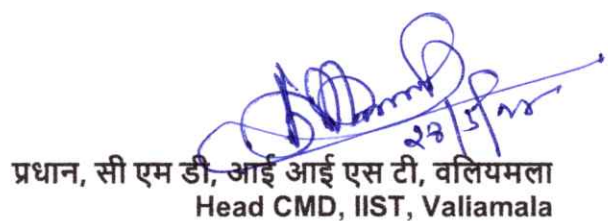 प्रधान, सी एम डी, आई आई एस टी, वलियमला
Head CMD, IIST, Valiamala